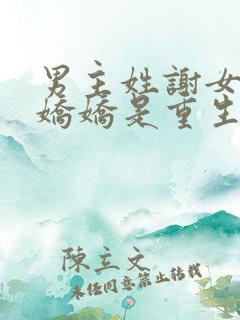 男主姓謝女
嬌嬌是重生
陳立文
未任同意禁止转载